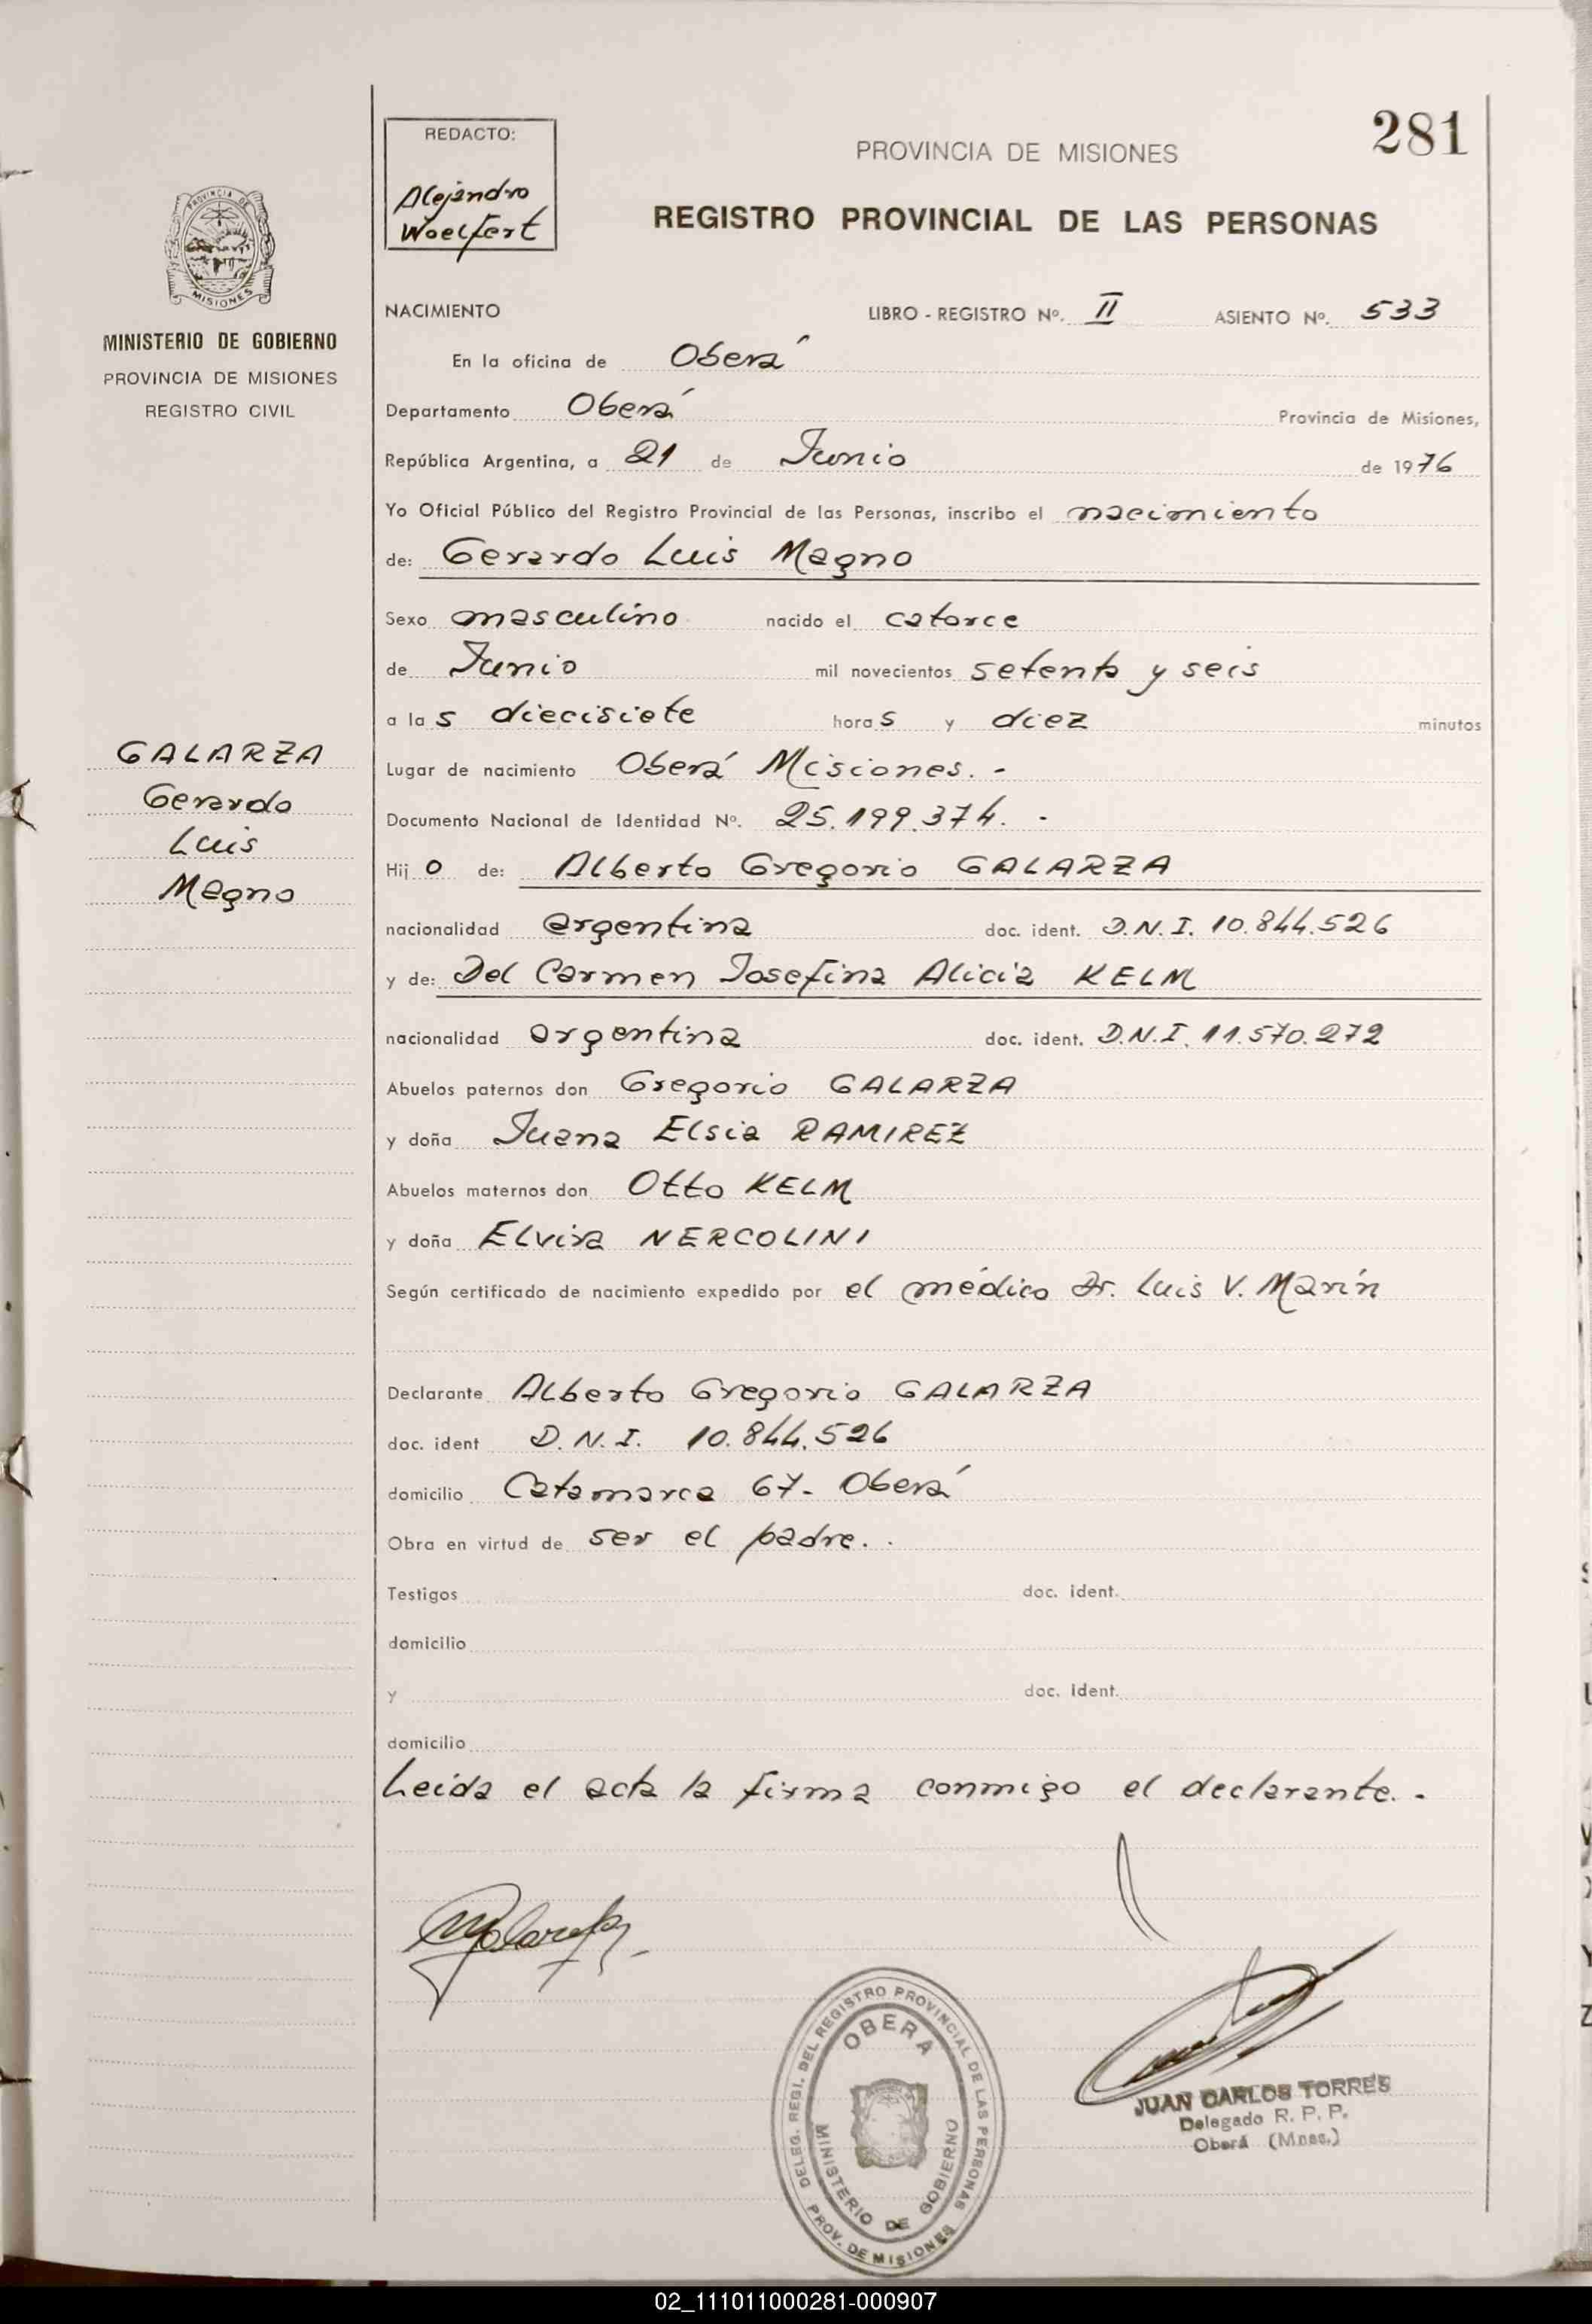 281
REDACTO:
Alejandro
Woelfert
PROVINCIA DE MISIONES
REGISTRO PROVINCIAL DE LAS PERSONAS
PROVINCIA DE
MISIONES
MINISTERIO DE GOBIERNO
PROVINCIA DE MISIONES
REGISTRO CIVIL
GALARZA
Gerardo
Luis
Magno
NACIMIENTO LIBRO - REGISTRO Nº. II ASIENTO Nº. 533
En la oficina de Oberá
Departamento Oberá Provincia de Misiones,
República Argentina, a 21 de Junio de 1976
Yo Oficial Público del Registro Provincial de las Personas, inscribo el nacimiento
de: Gerardo Luis Magno
Sexo masculino nacido el catorce
de Junio mil novecientos setenta y seis
a las diecisiete horas y diez minutos
Lugar de nacimiento Oberá Misiones. -
Documento Nacional de Identidad Nº. 25.199.374. -
Hijo de: Alberto Gregorio GALARZA
nacionalidad argentina doc. ident. D.N.I. 10.844.526
y de: Del Carmen Josefina Alicia KELM
nacionalidad argentina doc. ident. D.N.I. 11.570.272
Abuelos paternos don Gregorio GALARZA
y doña Juana Elsia RAMIREZ
Abuelos maternos don Otto KELM
y doña Elvira NERCOLINI
Según certificado de nacimiento expedido por el médico Dr. Luis V. Marín
Declarante Alberto Gregorio GALARZA
doc. ident D.N.I. 10.844.526
domicilio Catamarca 67- Oberá
Obra en virtud de ser el padre. .
Testigos doc. ident.
domicilio
y doc. ident.
domicilio
Leida el acta la firma conmigo el declarante. -
DELEG. REGI. DEL REGISTRO PROVINCIAL DE LAS PERSONAS
OBERA
MINISTERIO DE GOBIERNO
PROV. DE MISIONES
JUAN CARLOS TORRES
Delegado R. P. P.
Oberá (Mnes.)
02_111011000281-000907